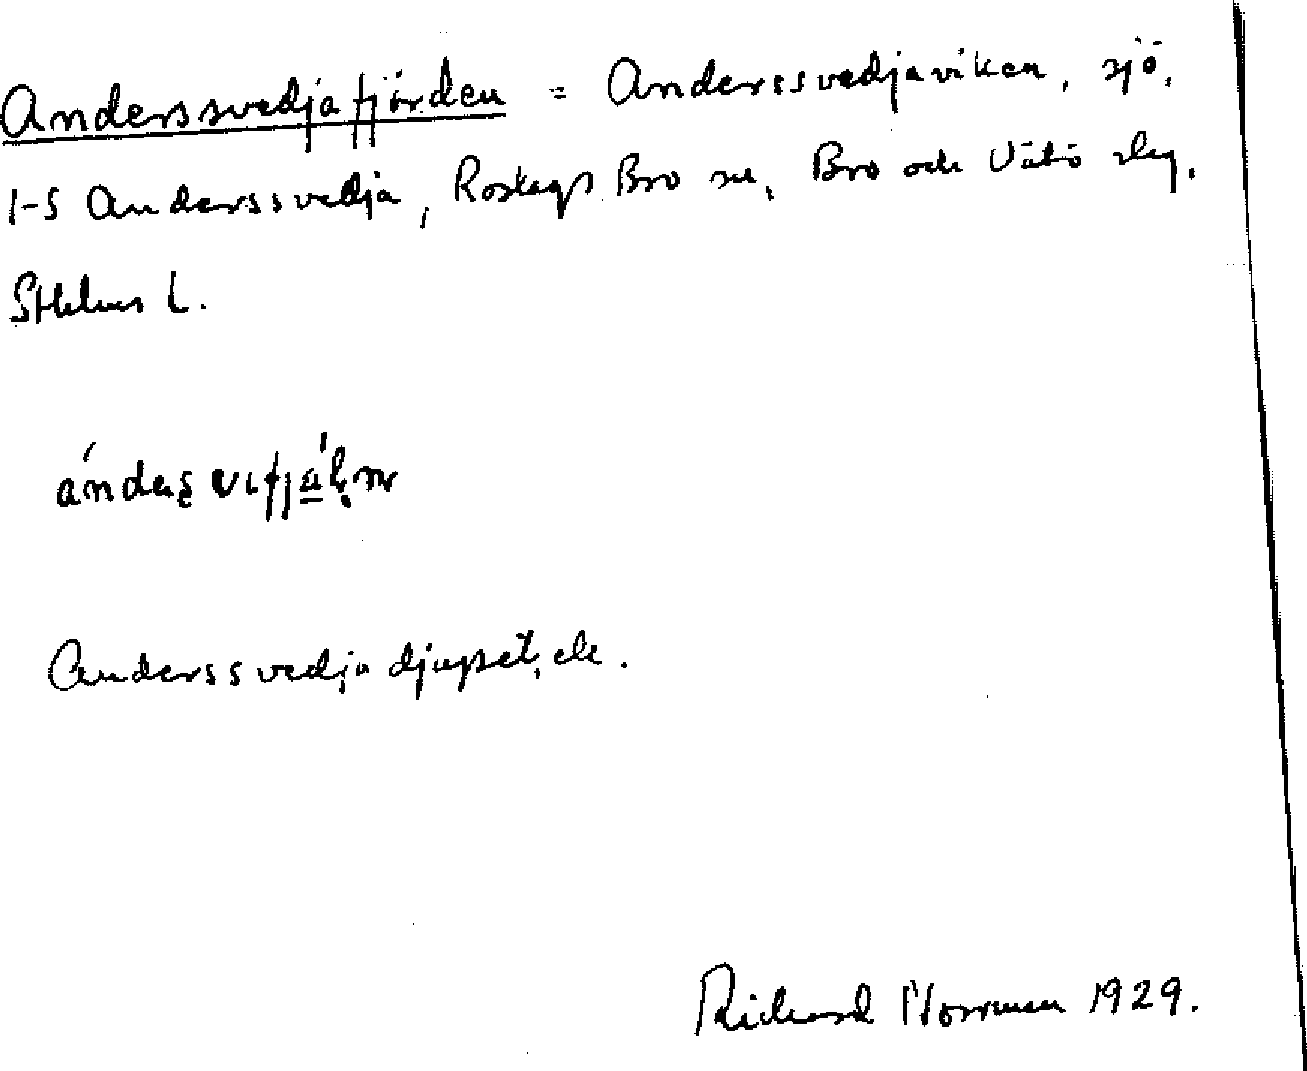 Anderssvedjafjärden = Anderssvedjaviken, sjö,
1-5 Anderssvedja, Roslags Bro sn, Bro och Vätö slg,
Sthlms L.
Anderssvedja djupet, ek.
Richard Norrman 1929.